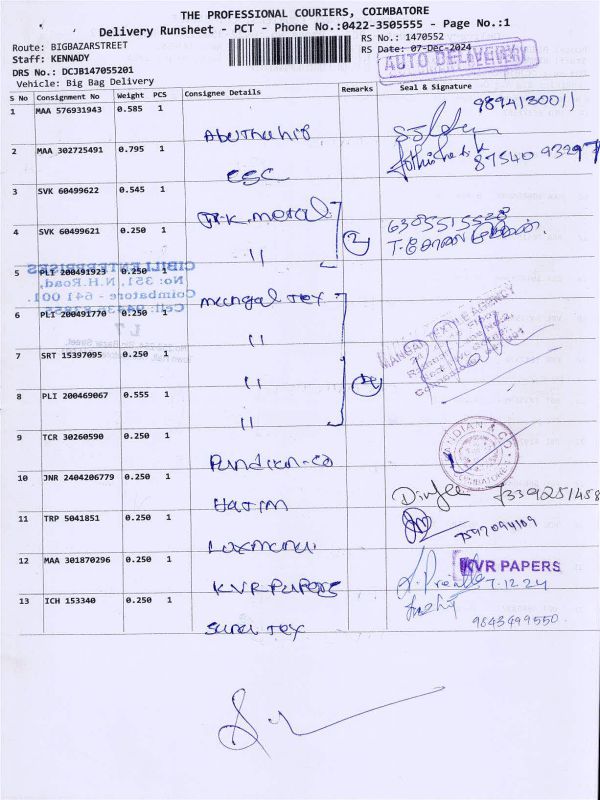 THE PROFESSIONAL COURIERS, COIMBATORE
Delivery Runsheet - PCT - Phone No.:0422-3505555 - Page No.:1
Route: BIGBAZARSTREET
RS No.: 1470552
Staff: KENNADY
RS Date: 07-Dec-2024
AUTO DELIVERY
DRS No.: DCJB147055201
Vehicle: Big Bag Delivery
S No Consignment No Weight PCS Consignee Details Remarks Seal & Signature
1 MAA 576931943 0.585 1 Abuthahir 9894130011
2 MAA 302725491 0.795 1 CSC 87540 93297
3 SVK 60499622 0.545 1 metal
4 SVK 60499621 0.250 1 " 2
5 PLI 200491923 0.250 1 mangal Tex
CIBILI ENTERPRISES
No: 351, N.H.Road,
Coimbatore - 641 001.
6 PLI 200491770 0.250 1 "
7 SRT 15397095 0.250 1 " 4
8 PLI 200469067 0.555 1 "
MANGAL TEXTILE AGENCY
9 TCR 30260590 0.250 1 Pandian-co
PANDIAN & CO
COIMBATORE
10 JNR 2404206779 0.250 1 Hatim
11 TRP 5041851 0.250 1 7592094109
12 MAA 301870296 0.250 1 KVR Papers
KVR PAPERS
7.12.24
13 ICH 153340 0.250 1 Tex 9843499550